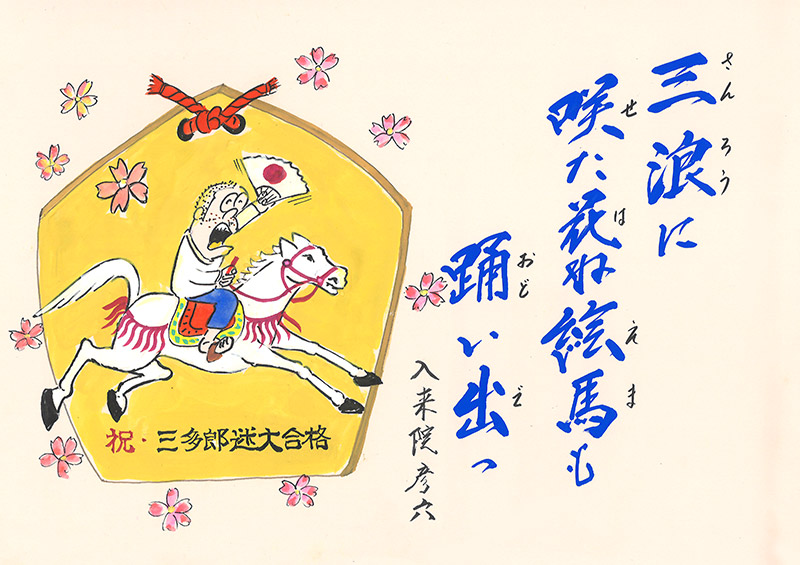 さんろう
三浪に
せ は え ま
咲た花ね絵馬も
おど で
踊い出っ
入来院彦六
祝・三多郎迷大合格